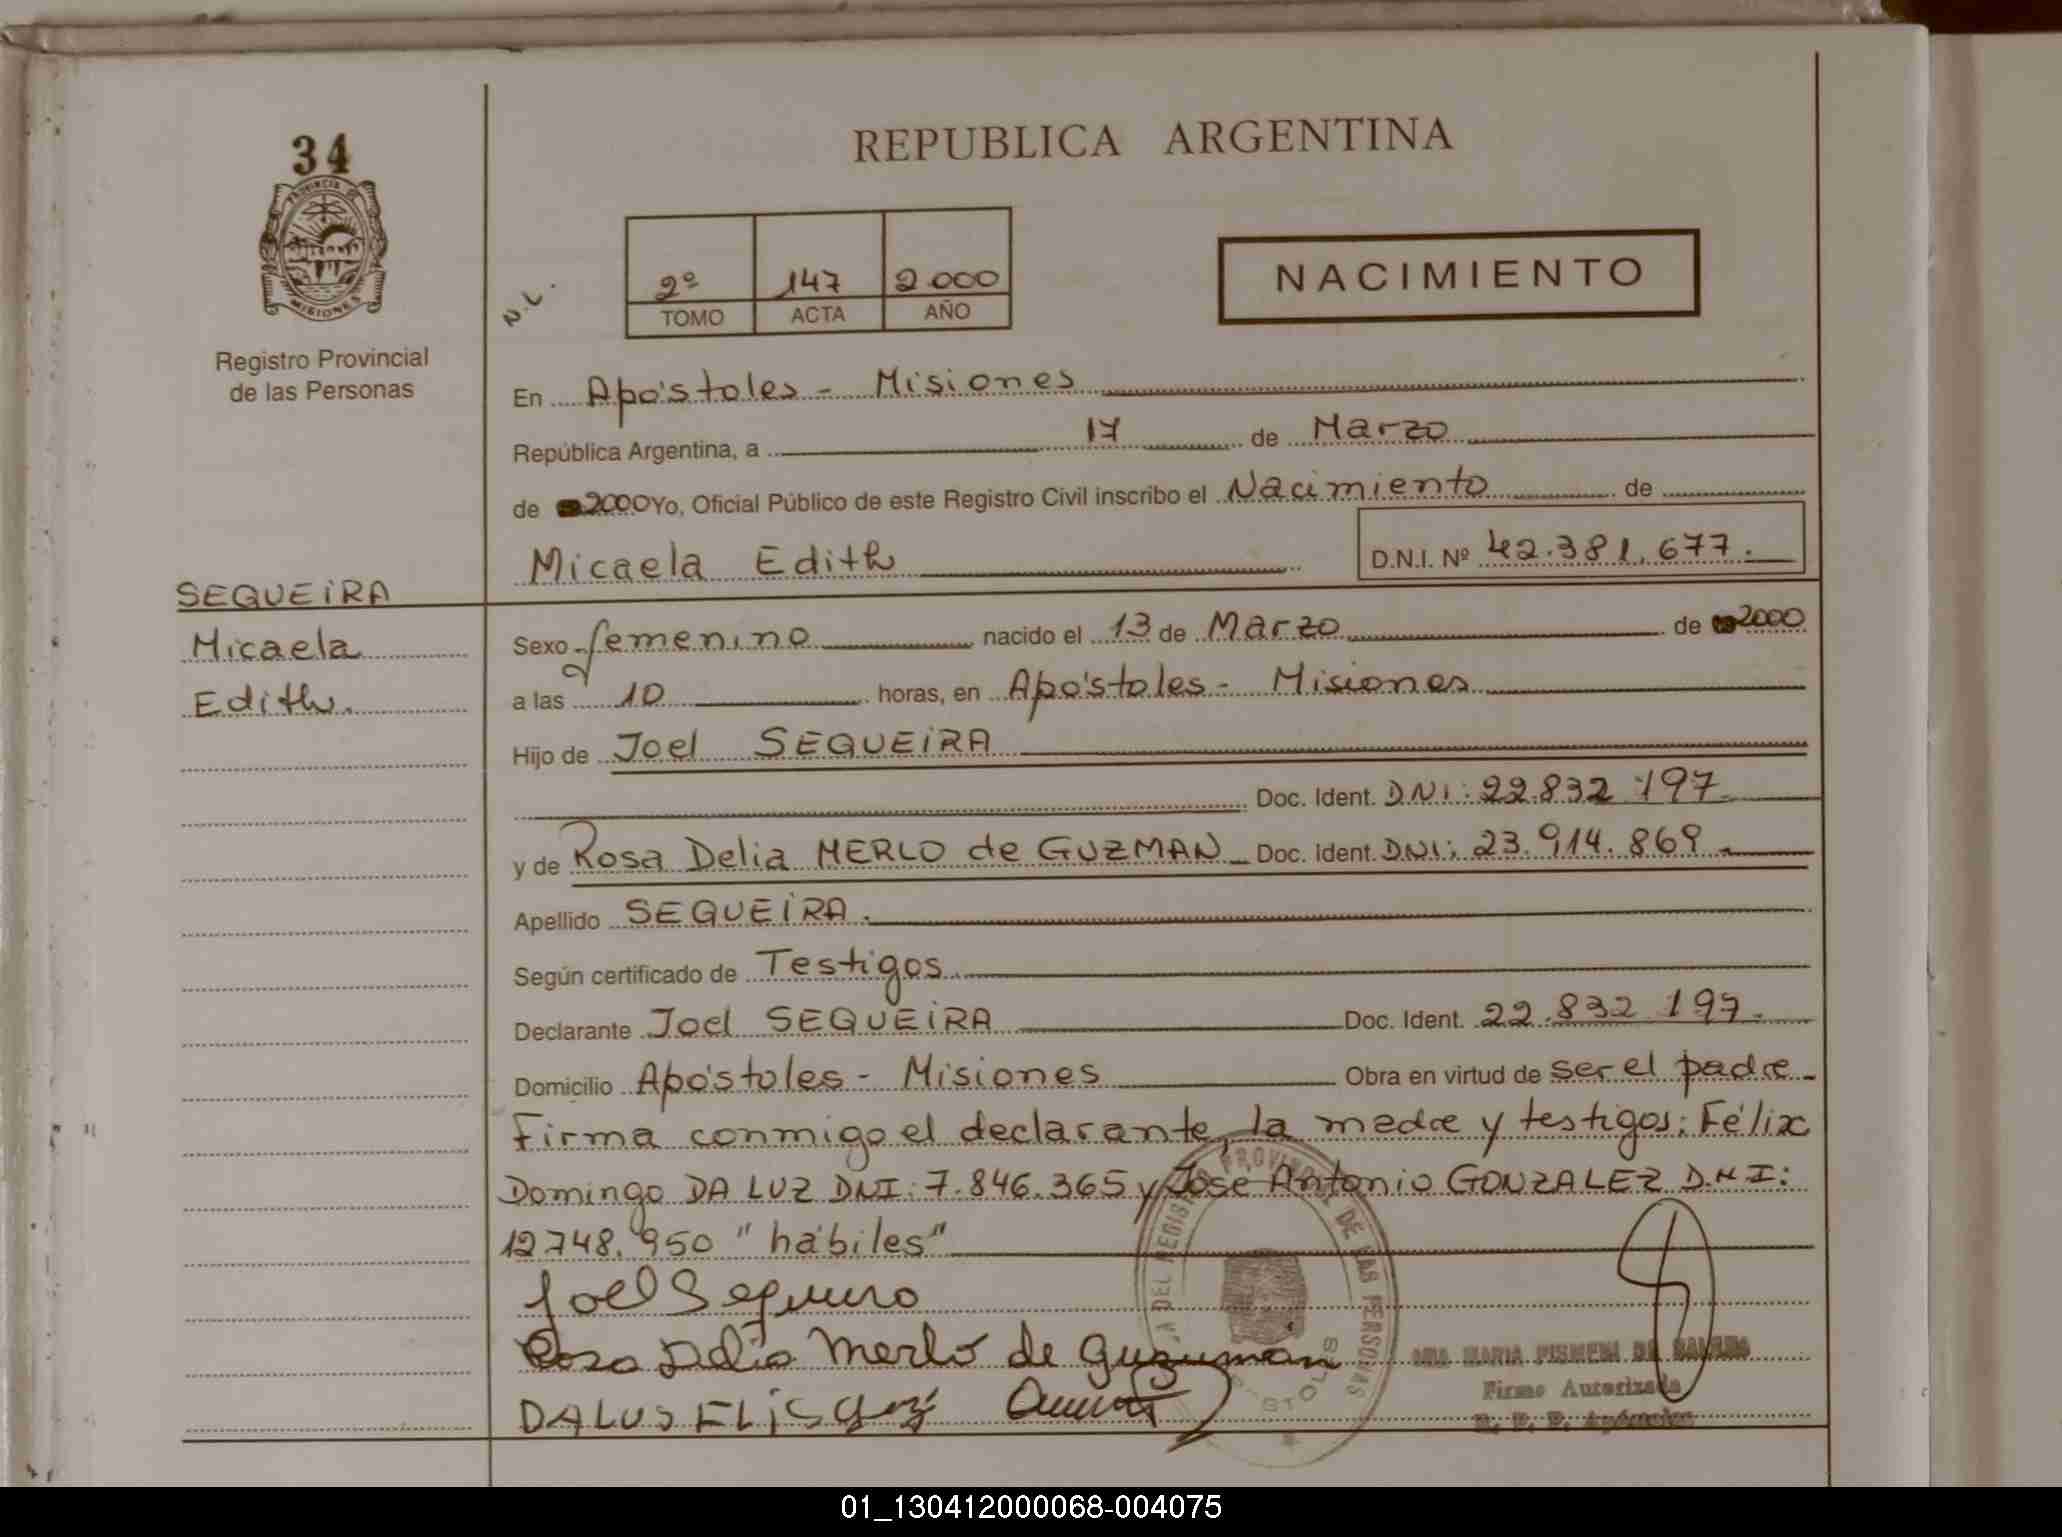 34
PROVINCIA DE
MISIONES
Registro Provincial
de las Personas
REPUBLICA ARGENTINA
N.L.
2º 147 2.000
TOMO ACTA AÑO
NACIMIENTO
En Apóstoles - Misiones
República Argentina, a 17 de Marzo
de 2000 Yo, Oficial Público de este Registro Civil inscribo el Nacimiento de
Micaela Edith D.N.I. Nº 42.381.677.
SEQUEIRA
Micaela
Edith.
Sexo femenino nacido el 13 de Marzo de 2000
a las 10 horas, en Apóstoles - Misiones
Hijo de Joel SEQUEIRA
Doc. Ident. DNI: 22.832.197
y de Rosa Delia MERLO de GUZMAN Doc. Ident. DNI: 23.914.869
Apellido SEQUEIRA.
Según certificado de Testigos
Declarante Joel SEQUEIRA Doc. Ident. 22.832.197.
Domicilio Apóstoles - Misiones Obra en virtud de ser el padre
Firma conmigo el declarante, la madre y testigos: Félix
Domingo DA LUZ DNI: 7.846.365 y José Antonio GONZALEZ D.N.I:
12748.950 "hábiles"
Joel Sequeira
Rosa Delia Merlo de Guzman
DALUS FELIS
REGISTRO PROVINCIAL DE LAS PERSONAS
ANA MARIA
Firma Autorizada
R. P. P. Apóstoles
01_130412000068-004075